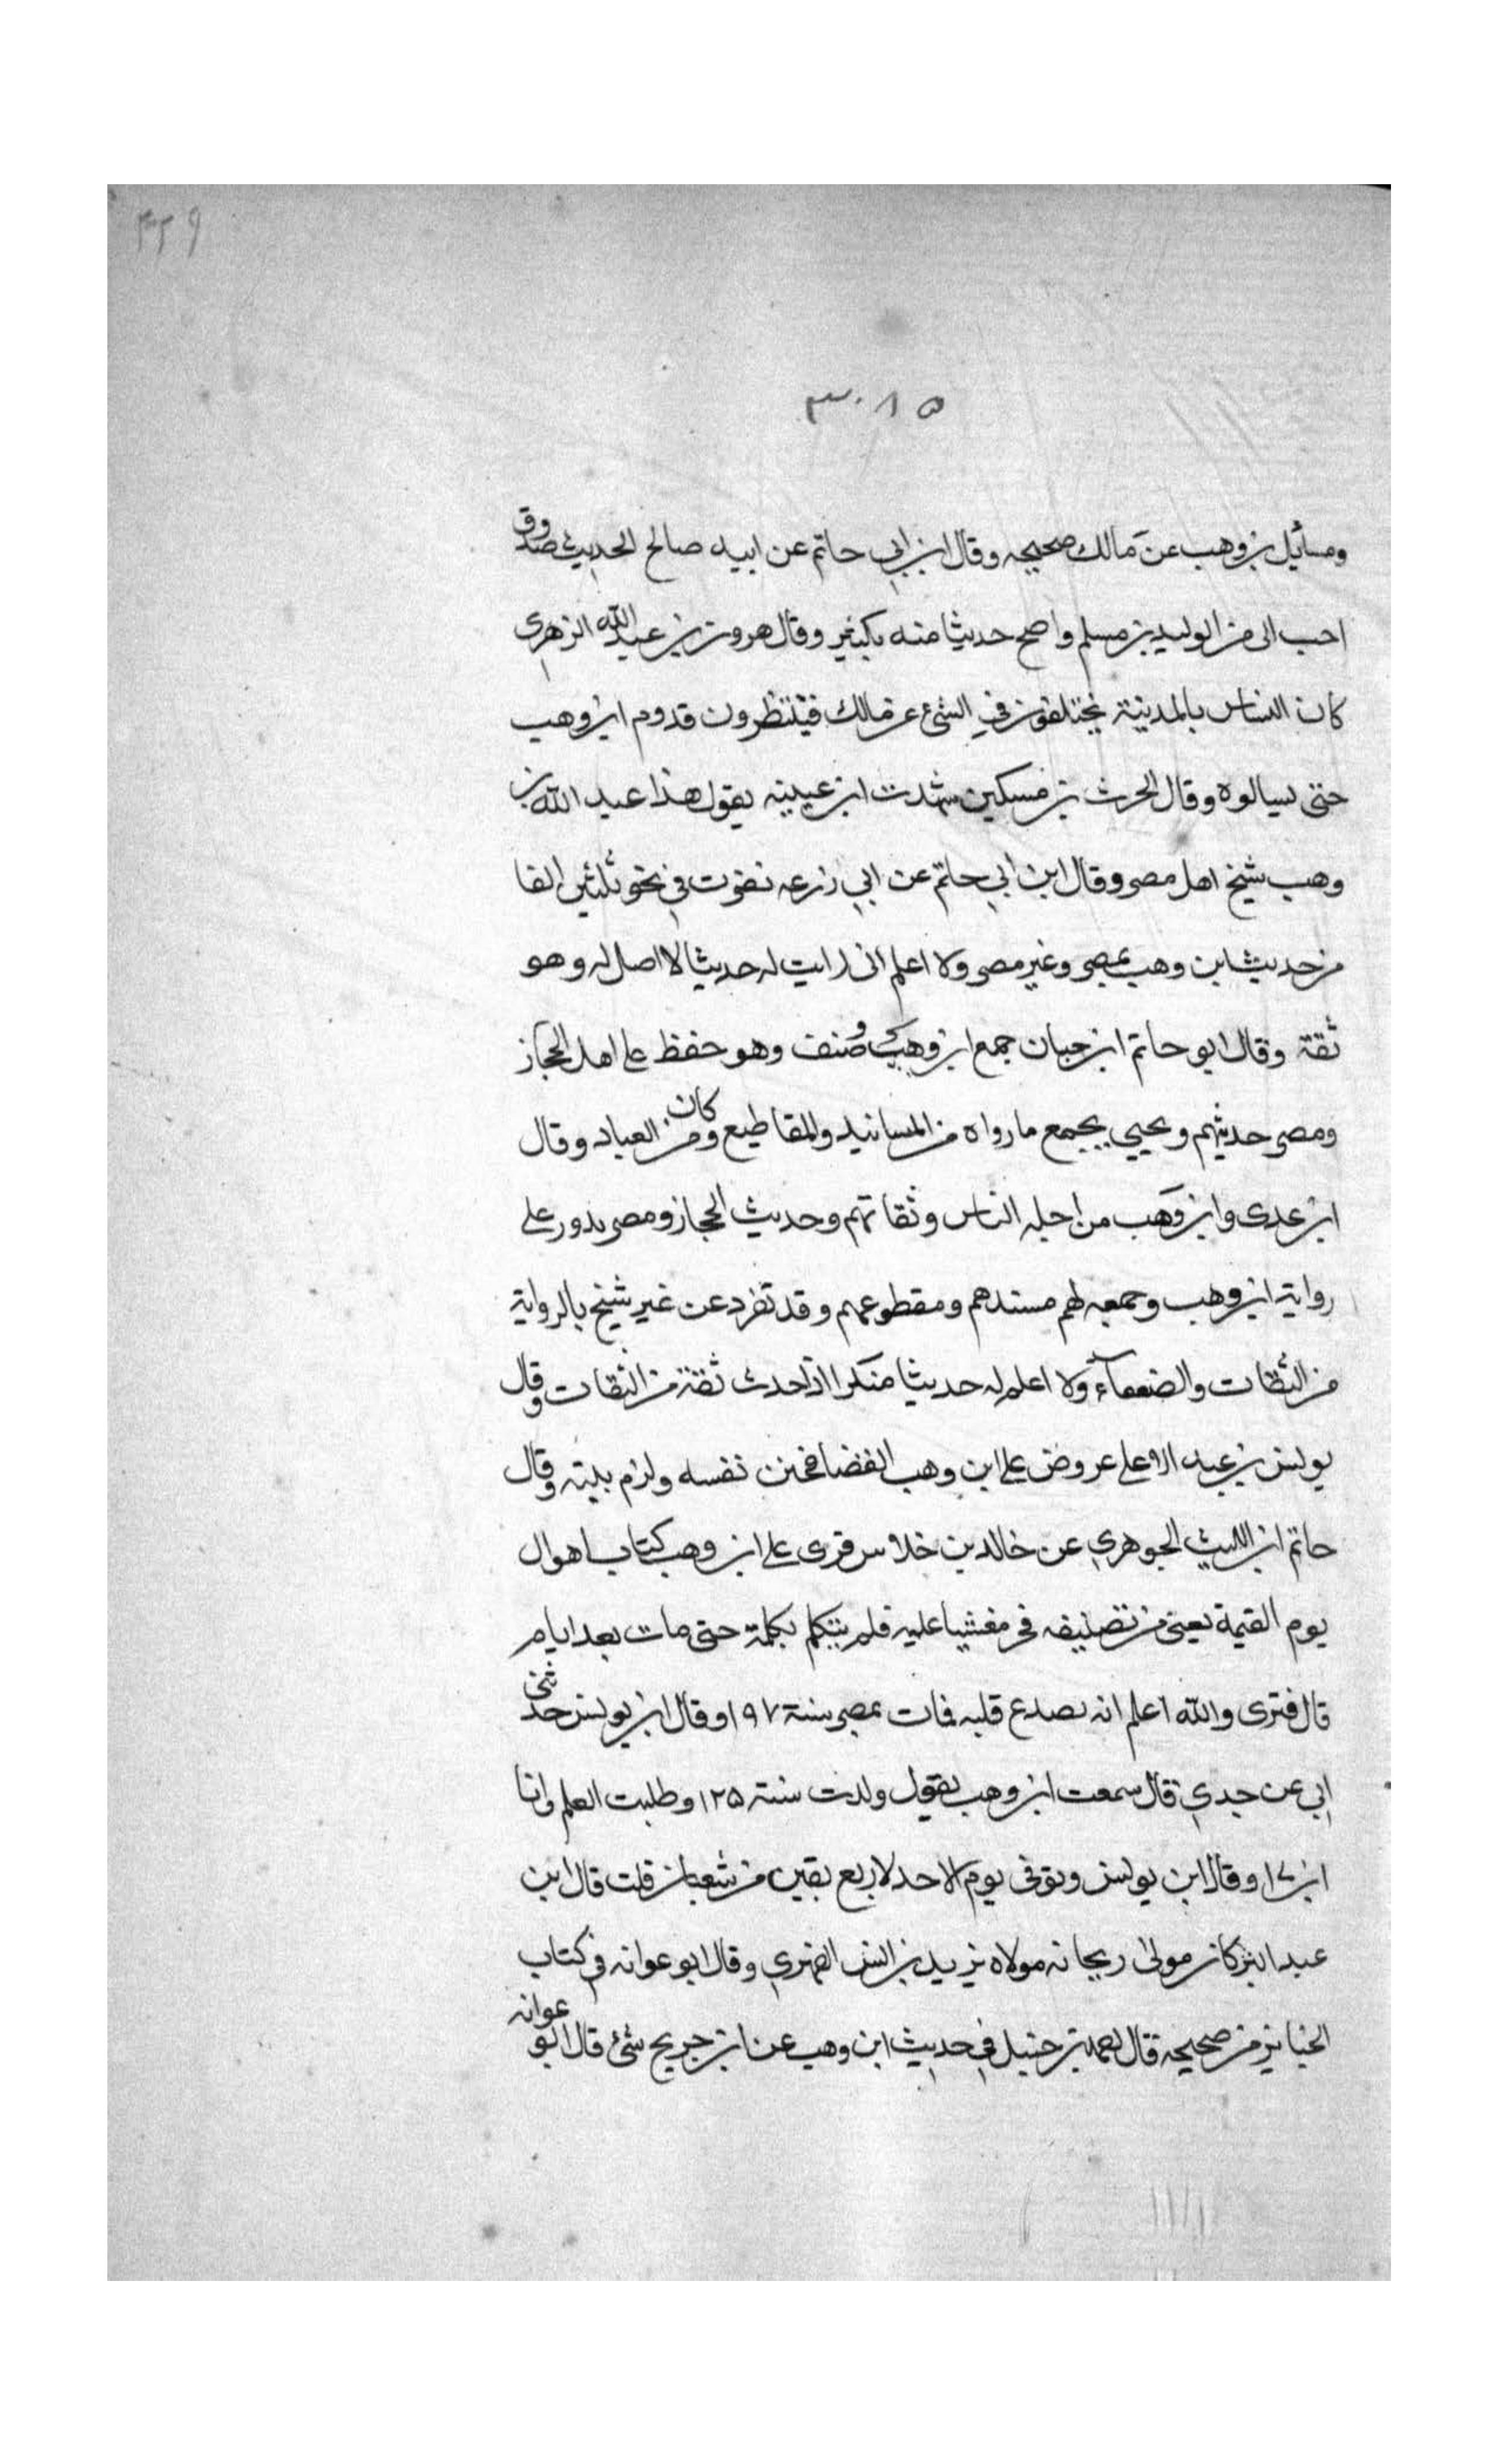 ٣٢٩
٣٠٨٥
ومسائل بن وهب عن مالك صحيحه وقال ابن ابي حاتم عن ابيه صالح الحديث صدوق
احب الى من الوليد بن مسلم واصح حديثا منه بكثير وقال هرون بن عبد الله الزهرى
كان الناس بالمدينة يختلفون في الشئ عن مالك فينتظرون قدوم ابن وهب
حتى يسالوه وقال الحرث بن مسكين شهدت ابن عيينه يقول هذا عبد الله بن
وهب شيخ اهل مصر وقال ابن ابي حاتم عن ابي زرعه نظرت في نحو ثلثين الفا
من حديث ابن وهب بمصر وغير مصر ولا اعلم انى رايت له حديثا لا اصل له وهو
ثقة وقال ابو حاتم ابن حبان جمع ابن وهب وصنف وهو حفظ على اهل الحجاز
ومصر حديثهم ويحيى بجمع ما رواه من المسانيد والمقاطيع وكان من العباد وقال
ابن عدى وابن وهب من اجله الناس وثقاتهم وحديث الحجاز ومصر يدور على
رواية ابن وهب وجمعه لهم مسندهم ومقطوعهم وقد تفرد عن غير شيخ بالرواية
من الثقات والضعفاء ولا اعلم له حديثا منكرا اذا حدث ثقة من الثقات وقال
يونس بن عبد الاعلى عروض على ابن وهب القضا فجنن نفسه ولزم بيته وقال
حاتم ابن الليث الجوهري عن خالد بن خلاس قرى على ابن وهب كتاب اهوال
يوم القيمة يعنى من تصنيفه فخر مغشيا عليه فلم يتكلم بكلمة حتى مات بعد ايام
قال فترى والله اعلم انه بصدع قلبه فمات بمصر سنة ١٩٧ وقال ابن يونس حدثنى
ابي عن جدي قال سمعت ابن وهب يقول ولدت سنة ١٢٥ وطلبت العلم وانا
ابن ١٧ وقال ابن يونس وتوفى يوم الاحد لاربع بقين من شعبان قلت قال ابن
عبد البر كان مولى ريحانه مولاه يزيد بن انس الفهري وقال ابو عوانه في كتاب
الجنايز من صحيحه قال احمد بن حنبل في حديث ابن وهب عن ابن جريج شئ قال ابو عوانه